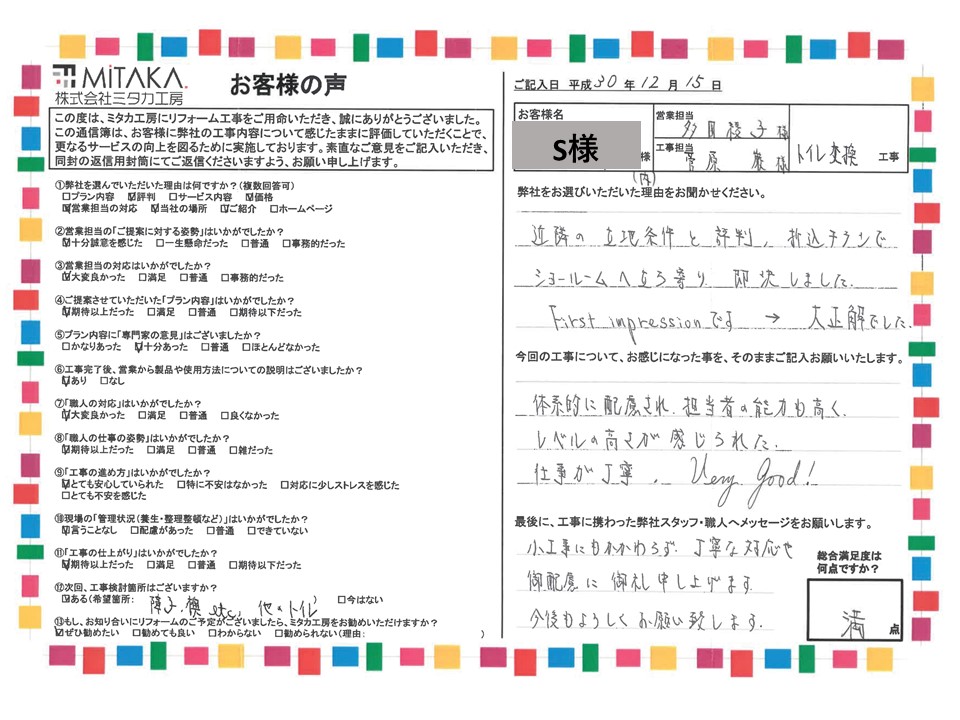 MiTAKA.
株式会社ミタカ工房
お客様の声
この度は、ミタカ工房にリフォーム工事をご用命いただき、誠にありがとうございました。
この通信簿は、お客様に弊社の工事内容について感じたままに評価していただくことで、
更なるサービスの向上を図るために実施しております。素直なご意見をご記入いただき、
同封の返信用封筒にてご返信くださいますよう、お願い申し上げます。
①弊社を選んでいただいた理由は何ですか?(複数回答可)
□プラン内容 ☑評判 □サービス内容 ☑価格
☑営業担当の対応 ☑当社の場所 ☑ご紹介 □ホームページ
②営業担当の「ご提案に対する姿勢」はいかがでしたか?
☑十分誠意を感じた □一生懸命だった □普通 □事務的だった
③営業担当の対応はいかがでしたか?
☑大変良かった □満足 □普通 □事務的だった
④ご提案させていただいた「プラン内容」はいかがでしたか?
☑期待以上だった □満足 □普通 □期待以下だった
⑤プラン内容に「専門家の意見」はございましたか?
□かなりあった ☑十分あった □普通 □ほとんどなかった
⑥工事完了後、営業から製品や使用方法についての説明はございましたか?
☑あり □なし
⑦「職人の対応」はいかがでしたか?
☑大変良かった □満足 □普通 □良くなかった
⑧「職人の仕事の姿勢」はいかがでしたか?
☑期待以上だった □満足 □普通 □雑だった
⑨「工事の進め方」はいかがでしたか?
☑とても安心していられた □特に不安はなかった □対応に少しストレスを感じた
□とても不安を感じた
⑩現場の「管理状況(養生・整理整頓など)」はいかがでしたか?
☑言うことなし □配慮があった □普通 □できていない
⑪「工事の仕上がり」はいかがでしたか?
☑期待以上だった □満足 □普通 □期待以下だった
⑫次回、工事検討箇所はございますか?
☑ある(希望箇所: 障子、襖 etc, 他のトイレ) □今はない
⑬もし、お知り合いにリフォームのご予定がございましたら、ミタカ工房をお勧めいただけますか?
☑ぜひ勧めたい □勧めても良い □わからない □勧められない(理由: )
ご記入日 平成30年12月15日
お客様名
S様
様
(内)
営業担当
多田綾子様
工事担当
菅原 巌様
トイレ交換 工事
弊社をお選びいただいた理由をお聞かせください。
近隣の立地条件と評判、折込チラシで
ショールームへ立ち寄り 即決しました。
First impressionです → 大正解でした。
今回の工事について、お感じになった事を、そのままご記入お願いいたします。
体系的に配慮され、担当者の能力も高く、
レベルの高さが感じられた。
仕事が丁寧、 Very Good!
最後に、工事に携わった弊社スタッフ・職人へメッセージをお願いします。
小工事にもかかわらず、丁寧な対応や
御配慮に御礼申し上げます。
今後もよろしくお願い致します。
総合満足度は
何点ですか?
満 点